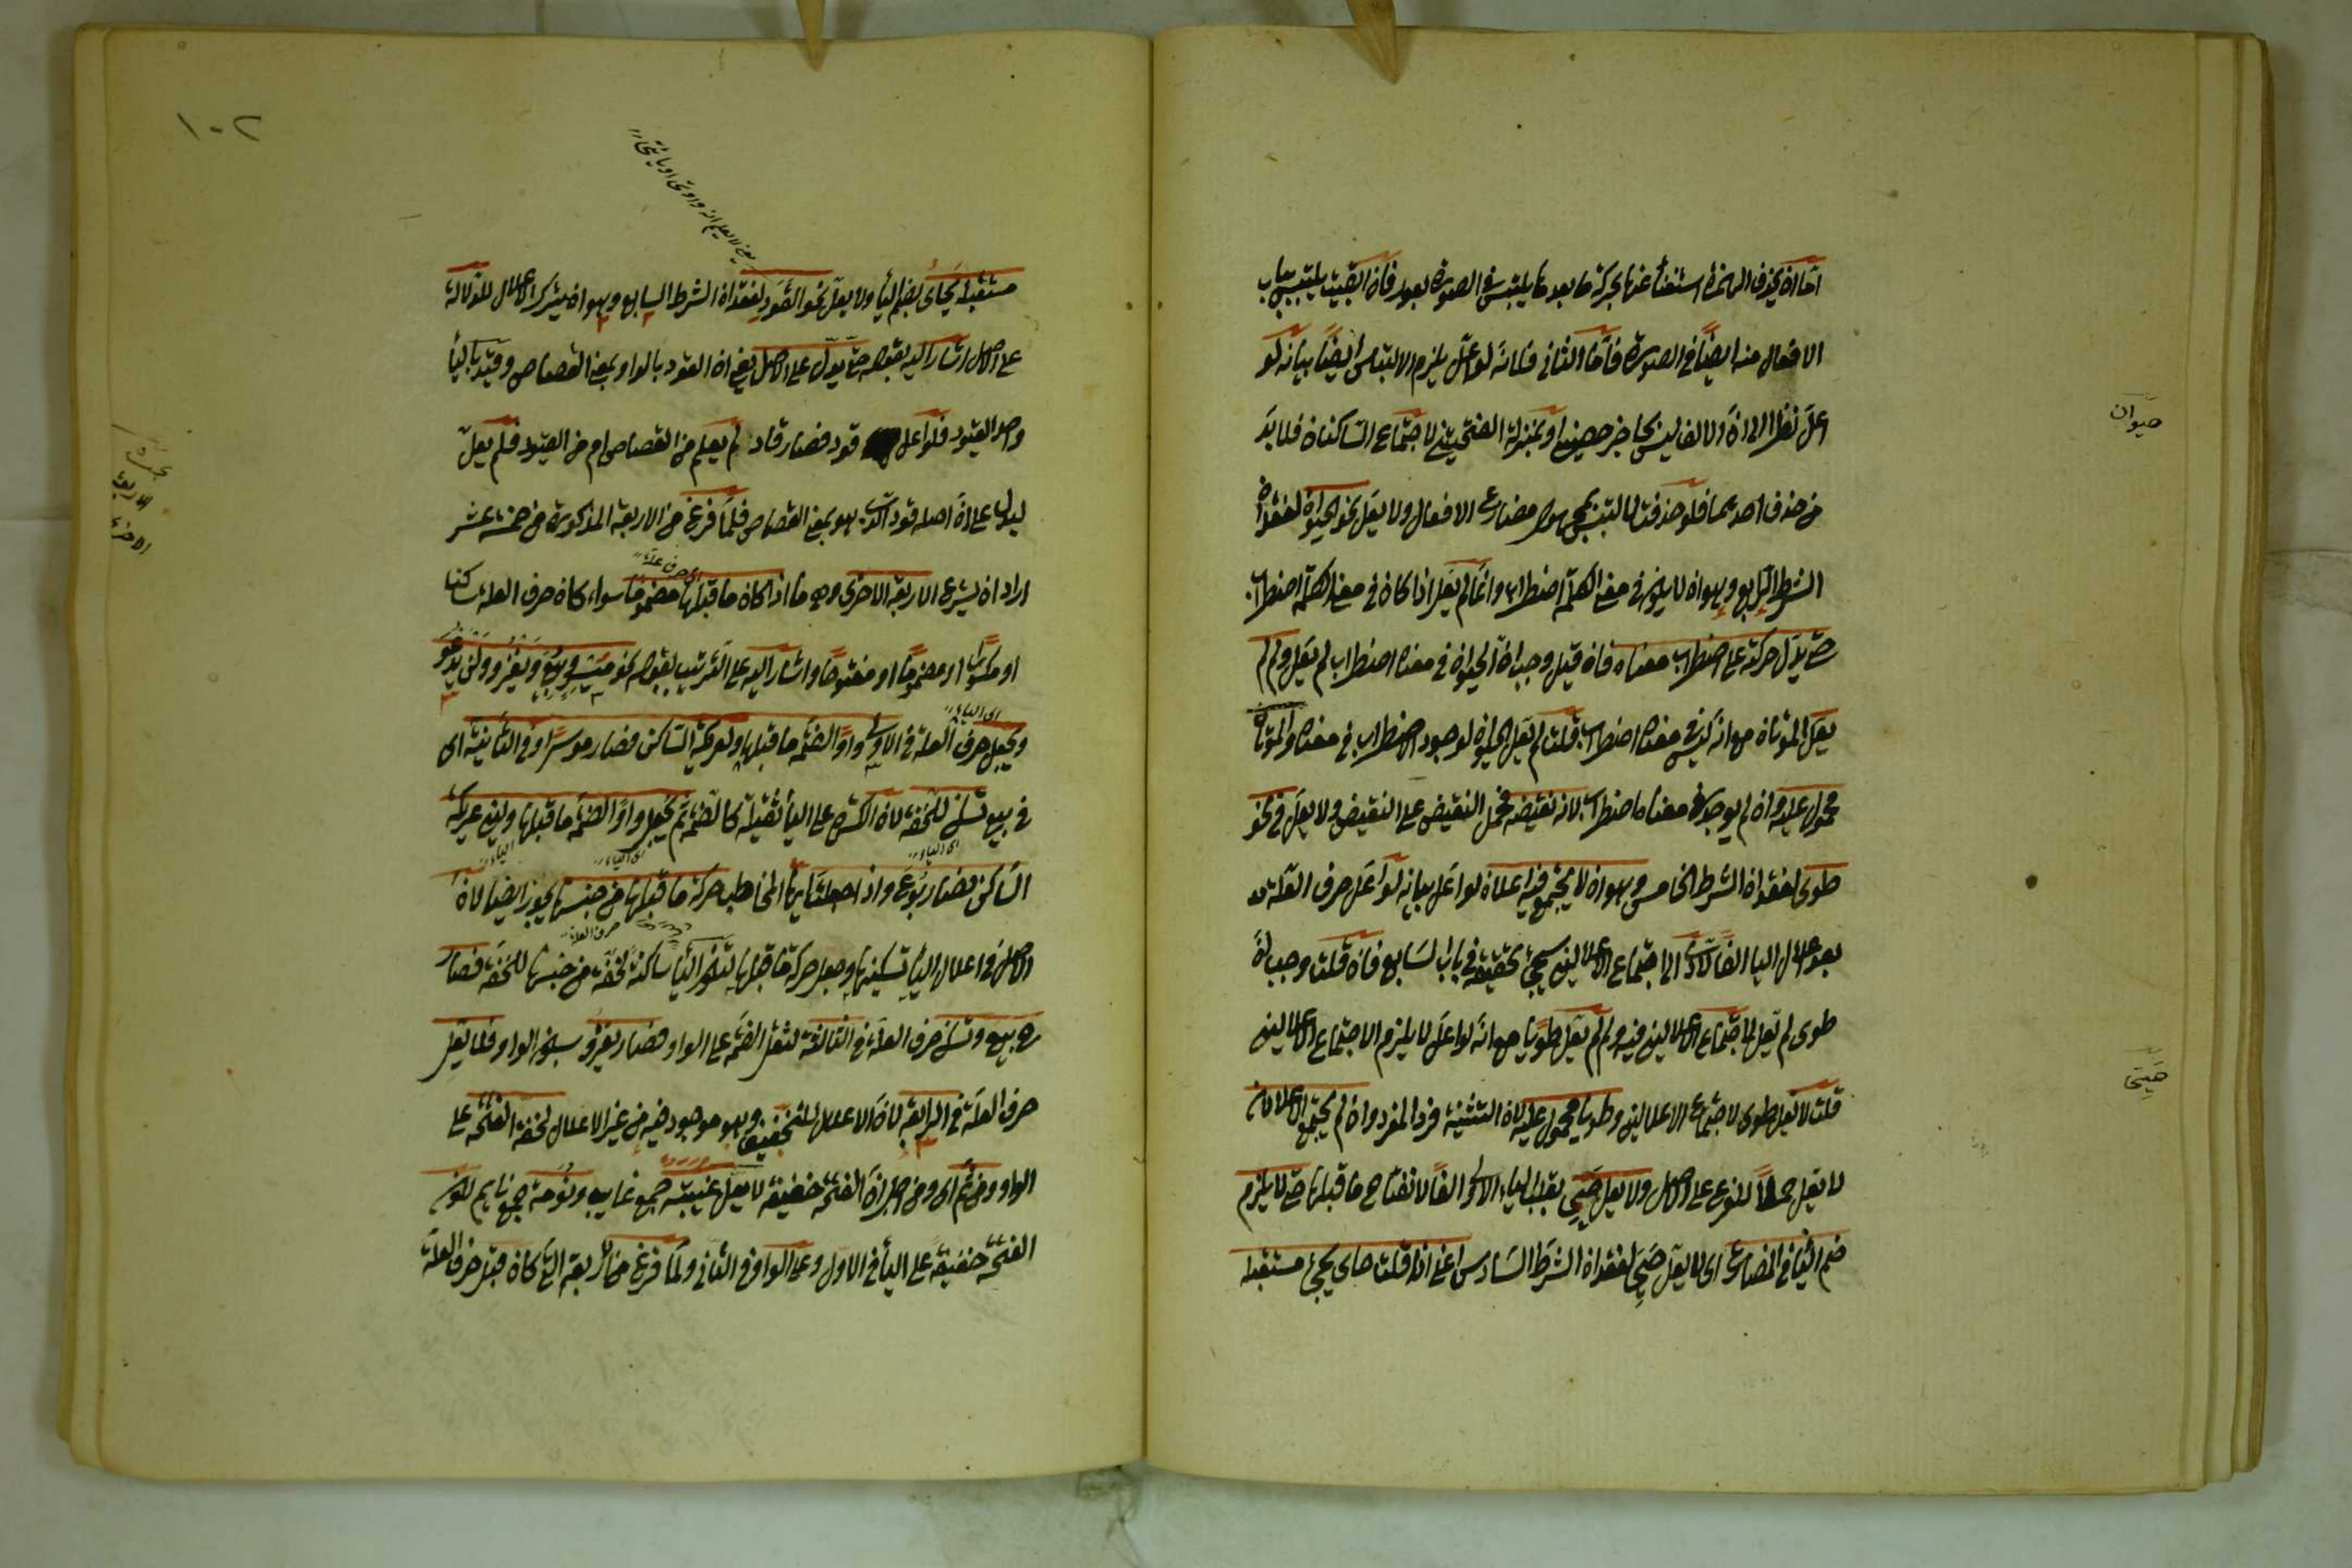 اما ان يحذف الهمزة استغناء عنها بحركة ما بعدها يلتبس في الصورة بعود فان القيت يلتبس بباب
الافعال منه ايضا في الصورة فاما الثاني فلانه لو اعل يلزم الالتباس ايضا بيانه لو
اعل نظرا الى ان الالف ليس بحاجز حصين او بمنزلة الفتحتين لاجتماع الساكنان فلا بد
من حذف احدهما فلو حذفت لالتبس مضارع الافعال ولا يعل نحو الحيوان لفقدان
الشرط الرابع وهو ان لا يكون في معنى الكلمة اضطراب وانما لم يعل اذا كان في معنى الكلمة اضطراب
حتى يدل حركته على اضطراب معناه فان قيل وجب ان الحيوان في معناه اضطراب لم يعل ولم لم
يعل الموتان مع انه ليس في معناه اضطراب قلت لم يعل الحيوان لوجود الاضطراب في معناه والموتان
محمول عليه وان لم يوجد في معناه اضطراب لانه نقيضه فحمل النقيض على النقيض ولا يعل في نحو
طوى لفقدان الشرط الخامس وهو ان لا يجتمع فيه اعلالان لو اعل بيانه لو اعل حرف العلة
بعد اعلال اليا الفا لادى الى اجتماع الاعلالين سيجئ تحقيقه في باب السابع فان قلت وجب ان
طوى لم يعل لاجتماع الاعلالين فيه ولم لم يعل طويا مع انه لو اعل لا يلزم الاجتماع الاعلالين
قلت لا يعل طوى لاجتماع الاعلالين وطويا محمول عليه لان التثنية فرد المفرد وان لم يجتمع الاعلالان
لا يعل حملا للفرع على الاصل ولا يعل حيي بقلب الياء الاولى الفا لانفتاح ما قبلها حتى لا يلزم
ضم اليا في المضارع اى لا يعل حيي لفقدان الشرط السادس اعني اذا قلت حاى يجئ مستقبله
حيوان
حيي
١٠٢
مستقبله يحاى بضم اليا ولا يعل نحو القود لفقدان الشرط السابع وهو ان يترك الاعلال للدلالة
على الاصل اشار اليه بقوله حتى يدل على الاصل يعني ان القود بالواو بمعنى القصاص وقيد باليا
واحد القيود فلو اعل قود فصار قاد لم يعلم من القصاص ام من القيد فلم يعل
ليدل على ان اصله قود الذى هو بمعنى القصاص فلما فرغ من الاربعة المذكورة من خمسة عشر
اراد ان يشرع الاربعة الاخرى وهو ما اذا كان ما قبلها مضموما سواء كان حرف العلة ساكنا
او مكسورا او مضموما او مفتوحا واشار اليه على الترتيب بقوله نحو ميسر وبيع ويغزو ولن يدعو
ويجعل حرف العلة في الاولى واوا لضمة ما قبلها ولعركة الساكن فصار موسرا وفي الثانية اى
في بيع تسكن للخفة لان الكسرة على اليا ثقيلة كالضمة ثم يجعل واوا لضمة ما قبلها ولين عريكة
الساكن فصار بوع واذا جعلت ايها المخاطب حركة ما قبلها من جنسها يجوز ايضا لان
الاصل في اعلال اليا تسكينها وجعل حركة ما قبلها لتكون اليا ساكنة من جنسها للخفة فصار
ح بيع وتسكن حرف العلة في الثالثة لثقل الضمة على الواو فصار يغزو بسكون الواو فلا يعل
حرف العلة في الرابعة لان الاعلال للتخفيف وهو موجود فيه من غير الاعلال لخفة الفتحة على
الواو ومن ثم اى ومن اجل ان الفتحة خفيفة لا يعل غيبة جمع غايب ونومة جمع نايم لكون
الفتحة خفيفة على اليا في الاول وعلى الواو في الثاني ولما فرغ من الاربعة التي كان قبل حرف العلة